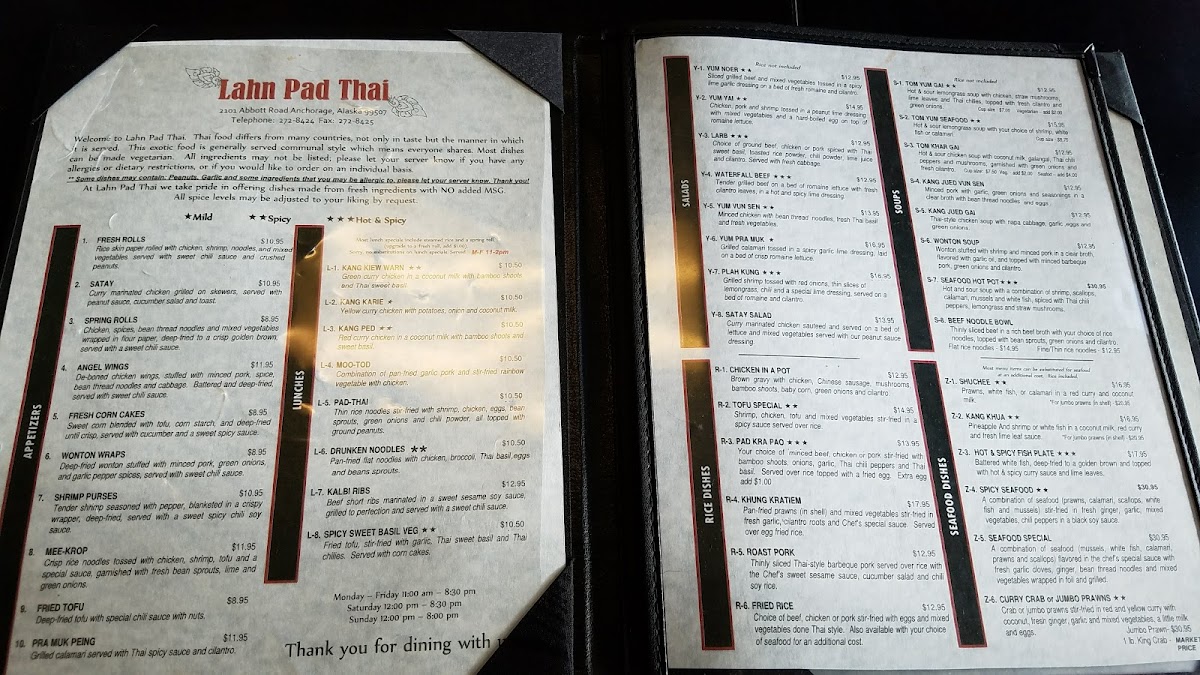 Lahn Pad Thai
2101 Abbott Road Anchorage, Alaska 99507
Telephone: 272-8424 Fax: 272-8425
Welcome to Lahn Pad Thai. Thai food differs from many countries, not only in taste but the manner in which
it is served. This exotic food is generally served communal style which means everyone shares. Most dishes
can be made vegetarian. All ingredients may not be listed; please let your server know if you have any
allergies or dietary restrictions, or if you would like to order on an individual basis.
** Some dishes may contain: Peanuts, Garlic and some ingredients that you may be allergic to, please let your server know. Thank you!
At Lahn Pad Thai we take pride in offering dishes made from fresh ingredients with NO added MSG.
All spice levels may be adjusted to your liking by request.
★Mild ★★Spicy ★★★Hot & Spicy
APPETIZERS
1. FRESH ROLLS $10.95
Rice skin paper rolled with chicken, shrimp, noodles, and mixed
vegetables served with sweet chili sauce and crushed
peanuts.
2. SATAY $10.95
Curry marinated chicken grilled on skewers, served with
peanut sauce, cucumber salad and toast.
3. SPRING ROLLS $8.95
Chicken, spices, bean thread noodles and mixed vegetables
wrapped in flour paper, deep-fried to a crisp golden brown,
served with a sweet chili sauce.
4. ANGEL WINGS $11.95
De-boned chicken wings, stuffed with minced pork, spice,
bean thread noodles and cabbage. Battered and deep-fried,
served with a sweet chili sauce.
5. FRESH CORN CAKES $8.95
Sweet corn blended with tofu, corn starch, and deep-fried
until crisp, served with cucumber and a sweet spicy sauce.
6. WONTON WRAPS $8.95
Deep-fried wonton stuffed with minced pork, green onions,
and garlic pepper spices, served with sweet chili sauce.
7. SHRIMP PURSES $10.95
Tender shrimp seasoned with pepper, blanketed in a crispy
wrapper, deep-fried, served with a sweet spicy chili soy
sauce.
8. MEE-KROP $11.95
Crisp rice noodles tossed with chicken, shrimp, tofu and a
special sauce, garnished with fresh bean sprouts, lime and
green onions.
9. FRIED TOFU $8.95
Deep-fried tofu with special chili sauce with nuts.
10. PRA MUK PEING $11.95
Grilled calamari served with Thai spicy sauce and cilantro.
LUNCHES
Most lunch specials include steamed rice and a spring roll
(upgrade to a Fresh roll, add $1.00)
Sorry, no substitutions on lunch specials. Served M-F 11-2pm
L-1. KANG KIEW WARN ★★ $10.50
Green curry chicken in a coconut milk with bamboo shoots
and Thai sweet basil.
L-2. KANG KARIE ★ $10.50
Yellow curry chicken with potatoes, onion and coconut milk.
L-3. KANG PED ★★ $10.50
Red curry chicken in a coconut milk with bamboo shoots and
sweet basil.
L-4. MOO-TOD $10.50
Combination of pan-fried garlic pork and stir-fried rainbow
vegetable with chicken.
L-5. PAD-THAI $10.50
Thin rice noodles stir-fried with shrimp, chicken, eggs, bean
sprouts, green onions and chili powder, all topped with
ground peanuts.
L-6. DRUNKEN NOODLES ★★ $10.50
Pan-fried flat noodles with chicken, broccoli, Thai basil,eggs
and beans sprouts.
L-7. KALBI RIBS $12.95
Beef short ribs marinated in a sweet sesame soy sauce,
grilled to perfection and served with a sweet chili sauce.
L-8. SPICY SWEET BASIL VEG ★★ $10.50
Fried tofu, stir-fried with garlic, Thai sweet basil and Thai
chilies. Served with corn cakes.
Monday – Friday 11:00 am – 8:30 pm
Saturday 12:00 pm – 8:30 pm
Sunday 12:00 pm – 8:00 pm
Thank you for dining with
SALADS
Rice not included
Y-1. YUM NOER ★★ $12.95
Sliced grilled beef and mixed vegetables tossed in a spicy
lime garlic dressing on a bed of fresh romaine and cilantro.
Y-2. YUM YAI ★★ $14.95
Chicken, pork and shrimp tossed in a peanut lime dressing
with mixed vegetables and a hard-boiled egg on top of
romaine lettuce.
Y-3. LARB ★★★ $12.95
Choice of ground beef, chicken or pork spiced with Thai
sweet basil, toasted rice powder, chili powder, lime juice
and cilantro. Served with fresh cabbage.
Y-4. WATERFALL BEEF ★★★ $12.95
Tender grilled beef on a bed of romaine lettuce with fresh
cilantro leaves, in a hot and spicy lime dressing.
Y-5. YUM VUN SEN ★★ $13.95
Minced chicken with bean thread noodles, fresh Thai basil
and fresh vegetables.
Y-6. YUM PRA MUK ★ $16.95
Grilled calamari tossed in a spicy garlic lime dressing, laid
on a bed of crisp romaine lettuce.
Y-7. PLAH KUNG ★★★ $16.95
Grilled shrimp tossed with red onions, thin slices of
lemongrass, chili and a special lime dressing, served on a
bed of romaine and cilantro.
Y-8. SATAY SALAD $13.95
Curry marinated chicken sauteed and served on a bed of
lettuce and mixed vegetables served with our peanut sauce
dressing.
RICE DISHES
R-1. CHICKEN IN A POT $12.95
Brown gravy with chicken, Chinese sausage, mushrooms,
bamboo shoots, baby corn, green onions and cilantro.
R-2. TOFU SPECIAL ★★ $14.95
Shrimp, chicken, tofu and mixed vegetables stir-fried in a
spicy sauce served over rice.
R-3. PAD KRA PAO ★★★ $13.95
Your choice of minced beef, chicken or pork stir-fried with
bamboo shoots, onions, garlic, Thai chili peppers and Thai
basil. Served over rice topped with a fried egg. Extra egg
add $1.00
R-4. KHUNG KRATIEM $17.95
Pan-fried prawns (in shell) and mixed vegetables stir-fried in
fresh garlic, cilantro roots and Chef's special sauce. Served
over egg fried rice.
R-5. ROAST PORK $12.95
Thinly sliced Thai-style barbeque pork served over rice with
the Chef's sweet sesame sauce, cucumber salad and chili
soy rice.
R-6. FRIED RICE $12.95
Choice of beef, chicken or pork stir-fried with eggs and mixed
vegetables done Thai style. Also available with your choice
of seafood for an additional cost.
SOUPS
Rice not included
S-1. TOM YUM GAI ★★
Hot & sour lemongrass soup with chicken, straw mushrooms,
lime leaves and Thai chilies, topped with fresh cilantro and
green onions. Cup size - $7.00 Vegetarian - add $2.00
S-2. TOM YUM SEAFOOD ★★ $15.95
Hot & sour lemongrass soup with your choice of shrimp, white
fish or calamari.
S-3. TOM KHAR GAI
Hot & sour chicken soup with coconut milk, galangal, Thai chili
peppers and mushrooms, garnished with fresh cilantro and
green onions.
S-4. KANG JUED VUN SEN $12.95
Minced pork with garlic, green onions and seasonings in a
clear broth with bean thread noodles and eggs.
S-5. KANG JUED GAI $12.95
Thai-style chicken soup with napa cabbage, garlic and
green onions.
S-6. WONTON SOUP $12.95
Wonton stuffed with shrimp and minced pork in a clear broth,
flavored with garlic oil, and topped with minced barbeque
pork, green onions and cilantro.
S-7. SEAFOOD HOT POT ★★★ $30.95
Hot and sour soup with a combination of shrimp, scallops,
calamari, mussels and white fish, spiced with Thai chili
peppers, lemongrass and straw mushrooms.
S-8. BEEF NOODLE BOWL
Thinly sliced beef in a rich beef broth with your choice of rice
noodles, topped with bean sprouts, green onions and cilantro.
Flat rice noodles - $14.95 Fine/Thin rice noodles - $12.95
SEAFOOD DISHES
Most menu items can be substituted for seafood
at an additional cost. Rice included.
Z-1. SHUCHEE ★★ $16.95
Prawns, white fish, or calamari in a red curry and coconut
milk. *For jumbo prawns (in shell) - $25.95
Z-2. KANG KHUA ★★ $16.95
Pineapple And shrimp or white fish in a coconut milk, red curry
and fresh lime leaf sauce. *For jumbo prawns (in shell) - $25.95
Z-3. HOT & SPICY FISH PLATE ★★★ $17.95
Battered white fish, deep-fried to a golden brown and topped
with hot & spicy curry sauce and lime leaves.
Z-4. SPICY SEAFOOD ★★ $30.95
A combination of seafood (prawns, calamari, scallops, white
fish and mussels) stir-fried in fresh ginger, garlic, mixed
vegetables, chili peppers in a black soy sauce.
Z-5. SEAFOOD SPECIAL $30.95
A combination of seafood (mussels, white fish, calamari,
prawns and scallops) flavored in the chef's special sauce with
fresh garlic cloves, ginger, bean thread noodles and mixed
vegetables wrapped in foil and grilled.
Z-6. CURRY CRAB or JUMBO PRAWNS ★★
Crab or jumbo prawns stir-fried in red and yellow curry with
coconut, fresh ginger, garlic and mixed vegetables, a little milk
and eggs. Jumbo Prawn- $30.95
1 lb. King Crab - MARKE
PRICE